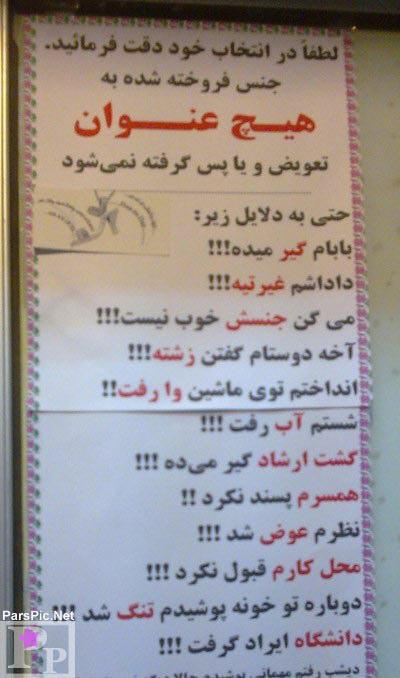 لطفاً در انتخاب خود دقت فرمائید.
جنس فروخته شده به
هیچ عنوان
تعویض و یا پس گرفته نمی‌شود
حتی به دلایل زیر:
بابام گیر میده!!!
داداشم غیرتیه!!!
می گن جنسش خوب نیست!!!
آخه دوستام گفتن زشته!!!
انداختم توی ماشین وا رفت!!
شستم آب رفت !!!
گشت ارشاد گیر می‌ده !!!
همسرم پسند نکرد !!
نظرم عوض شد !!!
محل کارم قبول نکرد !!!
دوباره تو خونه پوشیدم تنگ شد !!!
دانشگاه ایراد گرفت !!!
دیشب رفتم مهمانی پوشیدم
ParsPic.Net
PP